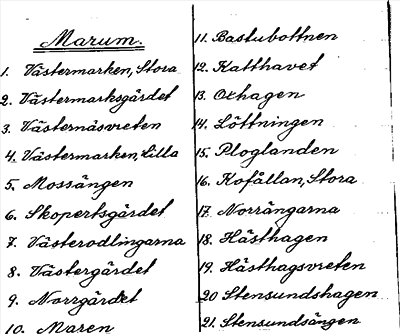 Marum.
1. Västermarken, Stora
2. Västermarksgärdet
3. Västernäsvreten
4. Västermarken, Lilla
5. Mossängen
6. Skopertsgärdet
7. Västerodlingarna
8. Västergärdet
9. Norrgärdet
10. Maren
11. Bastubottnen
12. Katthavet
13. Oxhagen
14. Löttningen
15. Ploglanden
16. Kofållan, Stora
17. Norrängarna
18. Hästhagen
19. Hästhagsvreten
20 Stensundshagen
21. Stensundsängen